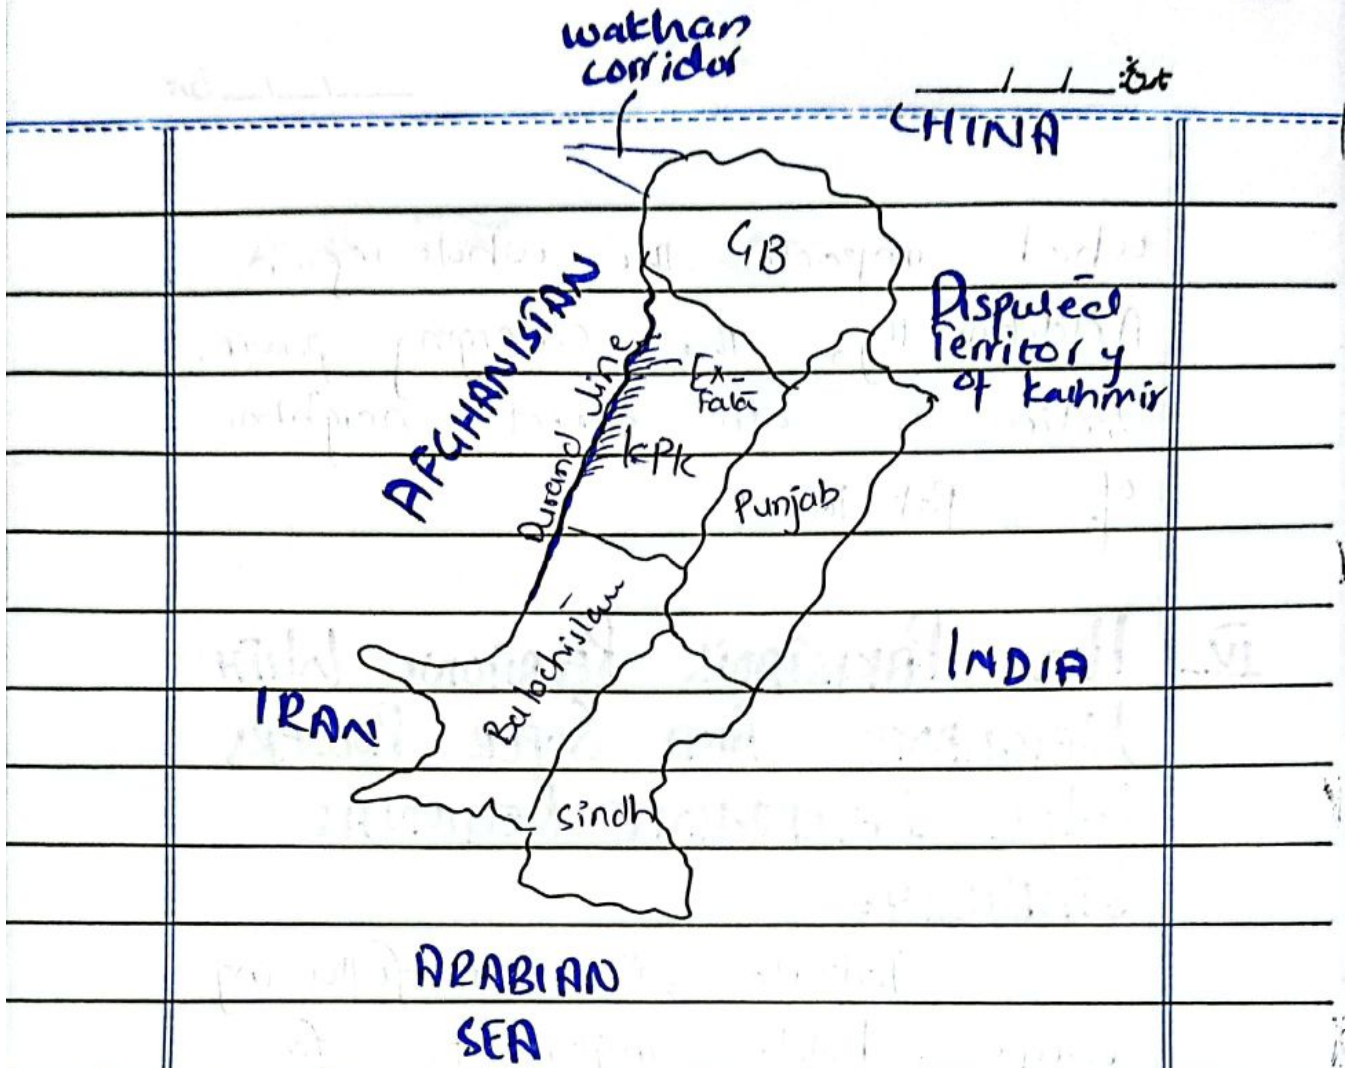 wakhan
corridor
___/___/___
CHINA
GB
AFGHANISTAN
Disputed
Territory
of Kashmir
Durand line
Ex-
Fata
KPK
Punjab
Balochistan
INDIA
IRAN
Sindh
ARABIAN
SEA